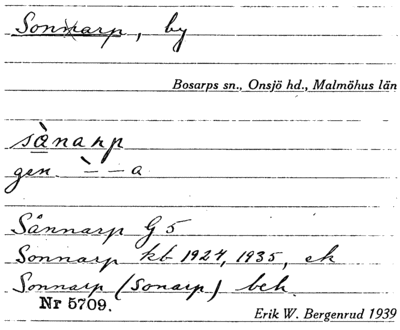 Sonnarp, by
Bosarps sn., Onsjö hd., Malmöhus län
sànarp
gen. `– – a
Sånnarp G 5
Sonnarp kb 1924, 1935, ek
Sonnarp (Sonarp) beh.
Nr 5709.
Erik W. Bergenrud 1939